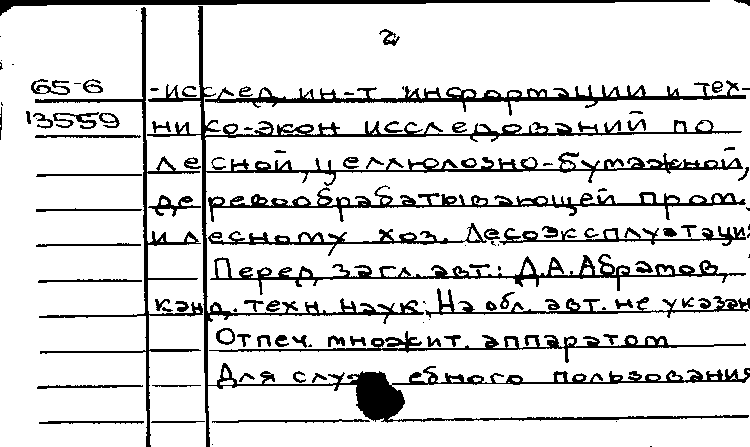 2
65-6 -исслед. ин-т информации и тех-
13559 нико-экон исследований по
лесной, целлюлозно-бумажной,
деревообрабатывающей пром.
и лесному хоз. Лесоэксплуатация
Перед загл. авт.: Д.А.Абрамов,
канд. техн. наук. На обл. авт. не указан
Отпеч. множит. аппаратом
Для служебного пользования